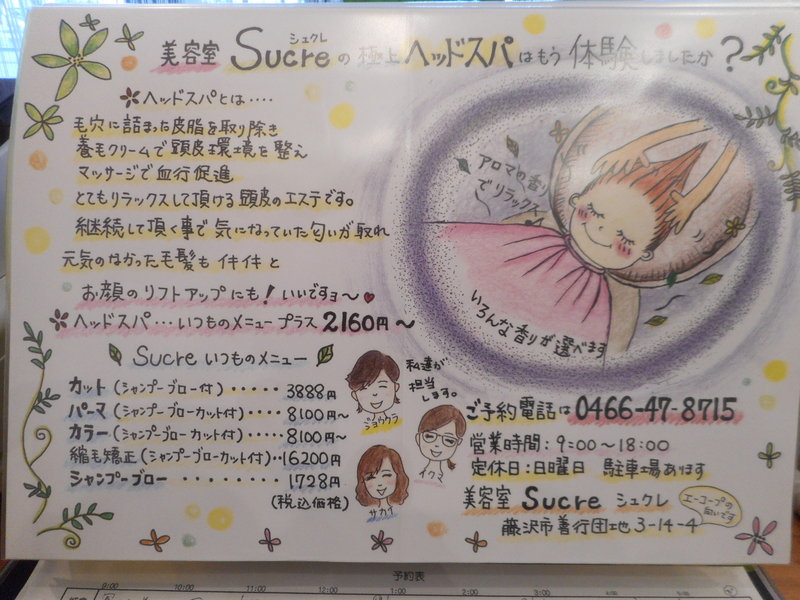 美容室 Sucre シュクレ の 極上 ヘッドスパ はもう 体験しましたか?
ヘッドスパとは‥‥
毛穴に詰まった皮脂を取り除き
養毛クリームで頭皮環境を整え
マッサージで血行促進
とてもリラックスして頂ける頭皮のエステです。
継続して頂く事で気になっていた匂いが取れ
元気のなかった毛髪もイキイキと
お顔のリフトアップにも!いいですョ〜♥
ヘッドスパ…いつものメニュープラス2160円〜
Sucre いつものメニュー
カット(シャンプーブロー付)‥‥‥3888円
パーマ(シャンプーブローカット付)‥‥8100円〜
カラー(シャンプーブローカット付)‥‥8100円〜
縮毛矯正(シャンプーブローカット付)‥16200円
シャンプーブロー ‥‥‥‥ 1728円
(税込価格)
私達が
担当
します。
ジョウクラ
イクマ
サカイ
アロマの香り
でリラックス
いろんな香りが選べます
ご予約電話は 0466-47-8715
営業時間:9:00〜18:00
定休日:日曜日 駐車場あります
美容室 Sucre シュクレ
エーコープの
向いです
藤沢市善行団地3-14-4
予約表
9:00 10:00 11:00 12:00 1:00 2:00 3:00 4:00 5:00